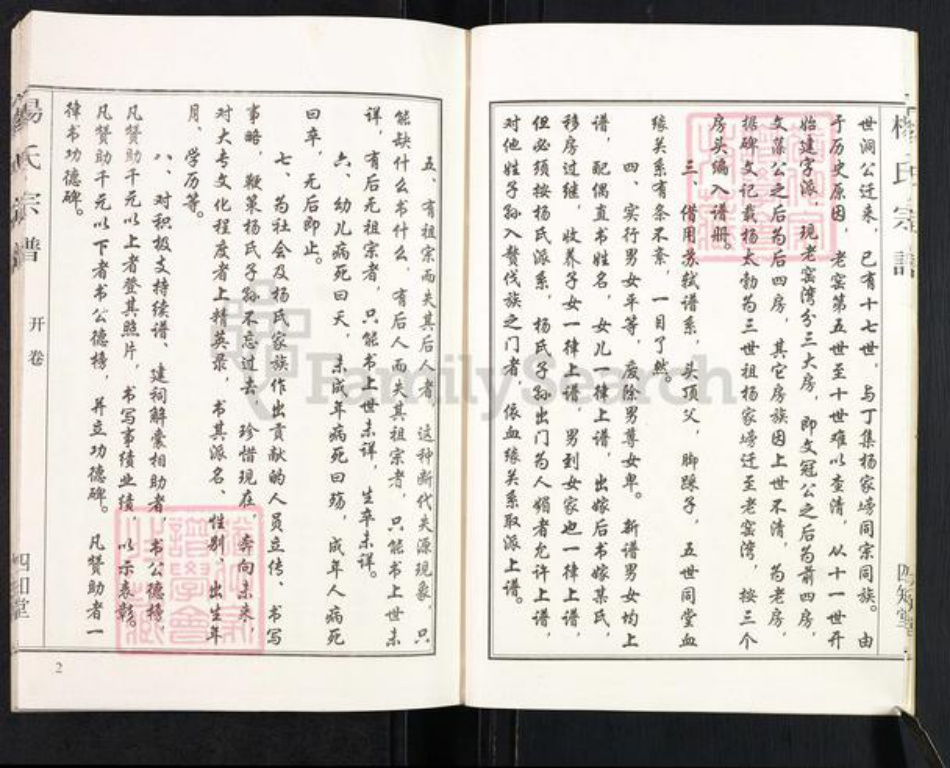 杨氏宗谱
四知堂
世洞公迁来，已有十七世，与丁集杨家塝同宗同族。由
于历史原因，老窑第五世至十世难以查清，从十一世开
始建字派，现老窑湾分三大房，即文冠公之后为前四房，
文藻公之后为后四房，其它房族因上世不清，为老房，
据碑文记载杨太勃为三世祖杨家塝迁至老窑湾，按三个
房头编入谱册。
三、借用苏轼谱系，头顶父，脚踩子，五世同堂血
缘关系有条不紊，一目了然。
四、实行男女平等，废除男尊女卑。新谱男女均上
谱，配偶直书姓名，女儿一律上谱，出嫁后书嫁某氏，
移房过继，收养子女一律上谱，男到女家也一律上谱，
但必须按杨氏派系，杨氏子孙出门为人婿者允许上谱，
对他姓子孙入赘伐族之门者，依血缘关系取派上谱。
五、有祖宗而失其后人者，这种断代失源现象，只
能缺什么书什么，有后人而失其祖宗者，只能书上世未
详，有后无祖宗者，只能书上世未详，生卒未详。
六、幼儿病死曰夭，未成年病死曰殇，成年人病死
曰卒，无后即止。
七、为社会及杨氏家族作出贡献的人员立传、书写
事略，鞭策杨氏子孙不忘过去，珍惜现在，奔向未来，
对大专文化程度者上精英录，书其派名、性别、出生年
月、学历等。
八、对积极支持续谱、建祠解囊相助者，书公德榜，
凡赞助千元以上者登其照片，书写事绩业绩，以示表彰。
凡赞助千元以下者书公德榜，并立功德碑。凡赞助者一
律书功德碑。
杨氏宗谱
开卷
四知堂
2
FamilySearch